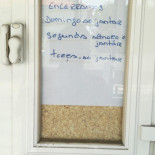 Encerramos
Domingo ao jantar
Segunda almoço e
jantar
terça ao jantar